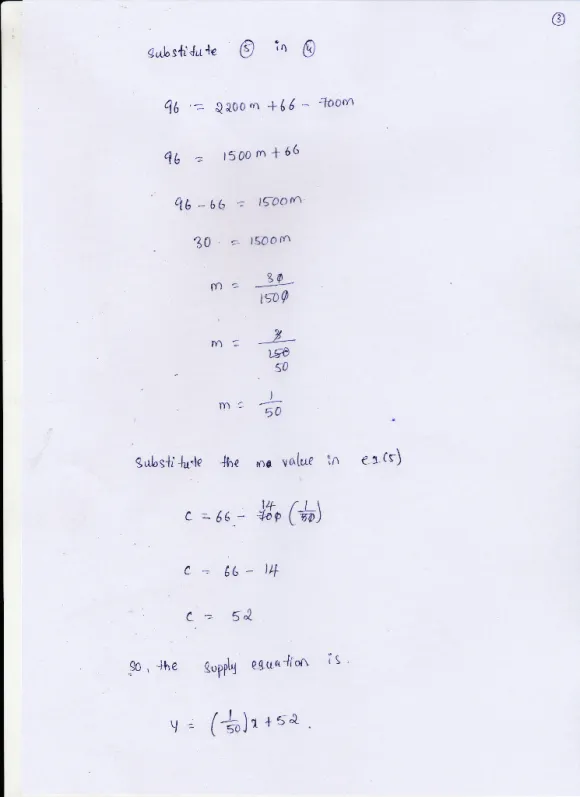 ③
Substitute ⑤ in ④
96 = 2200m + 66 - 700m
96 = 1500m + 66
96 - 66 = 1500m
30 = 1500m
m = 30/1500
m = 3/150
50
m = 1/50
Substitute the m value in eq.(5)
14
C = 66 - 700 (1/50)
C = 66 - 14
C = 52
So, the supply equation is.
y = (1/50)x + 52.